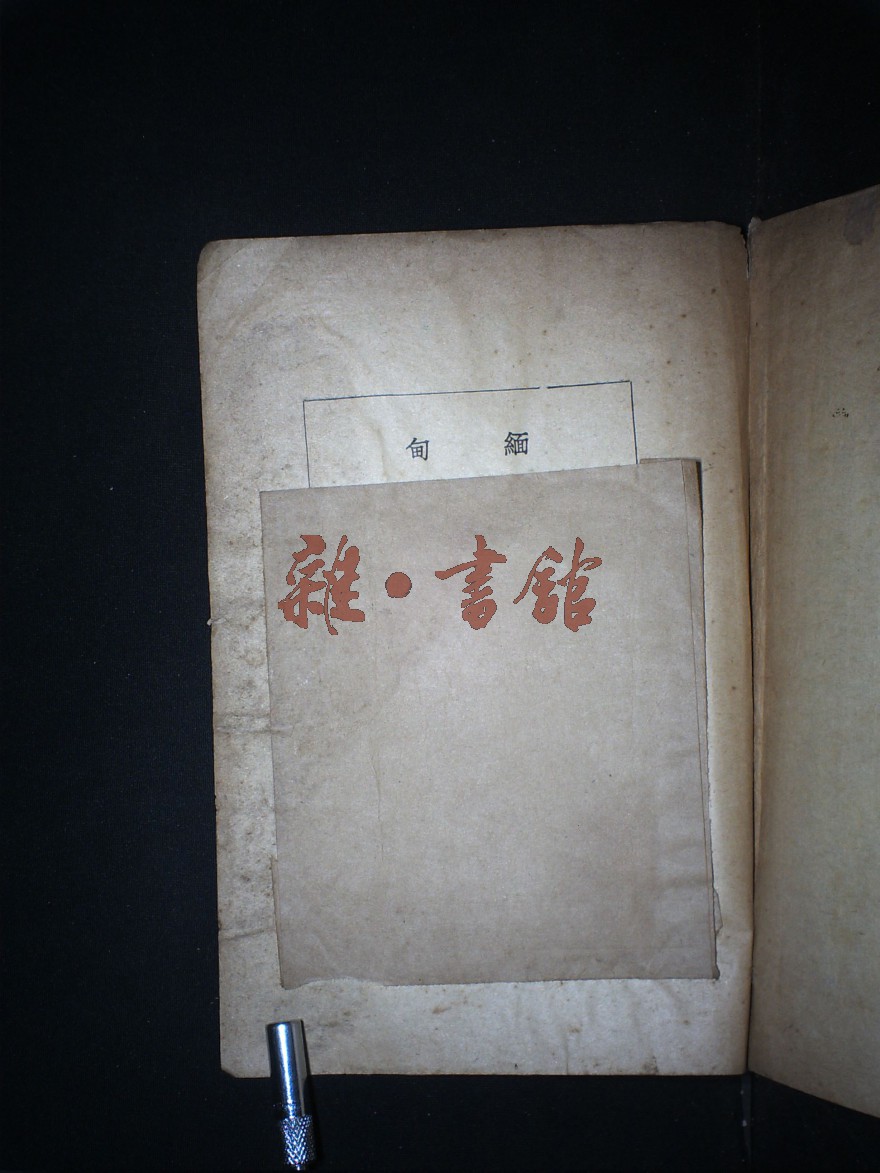 緬甸
雜·書館